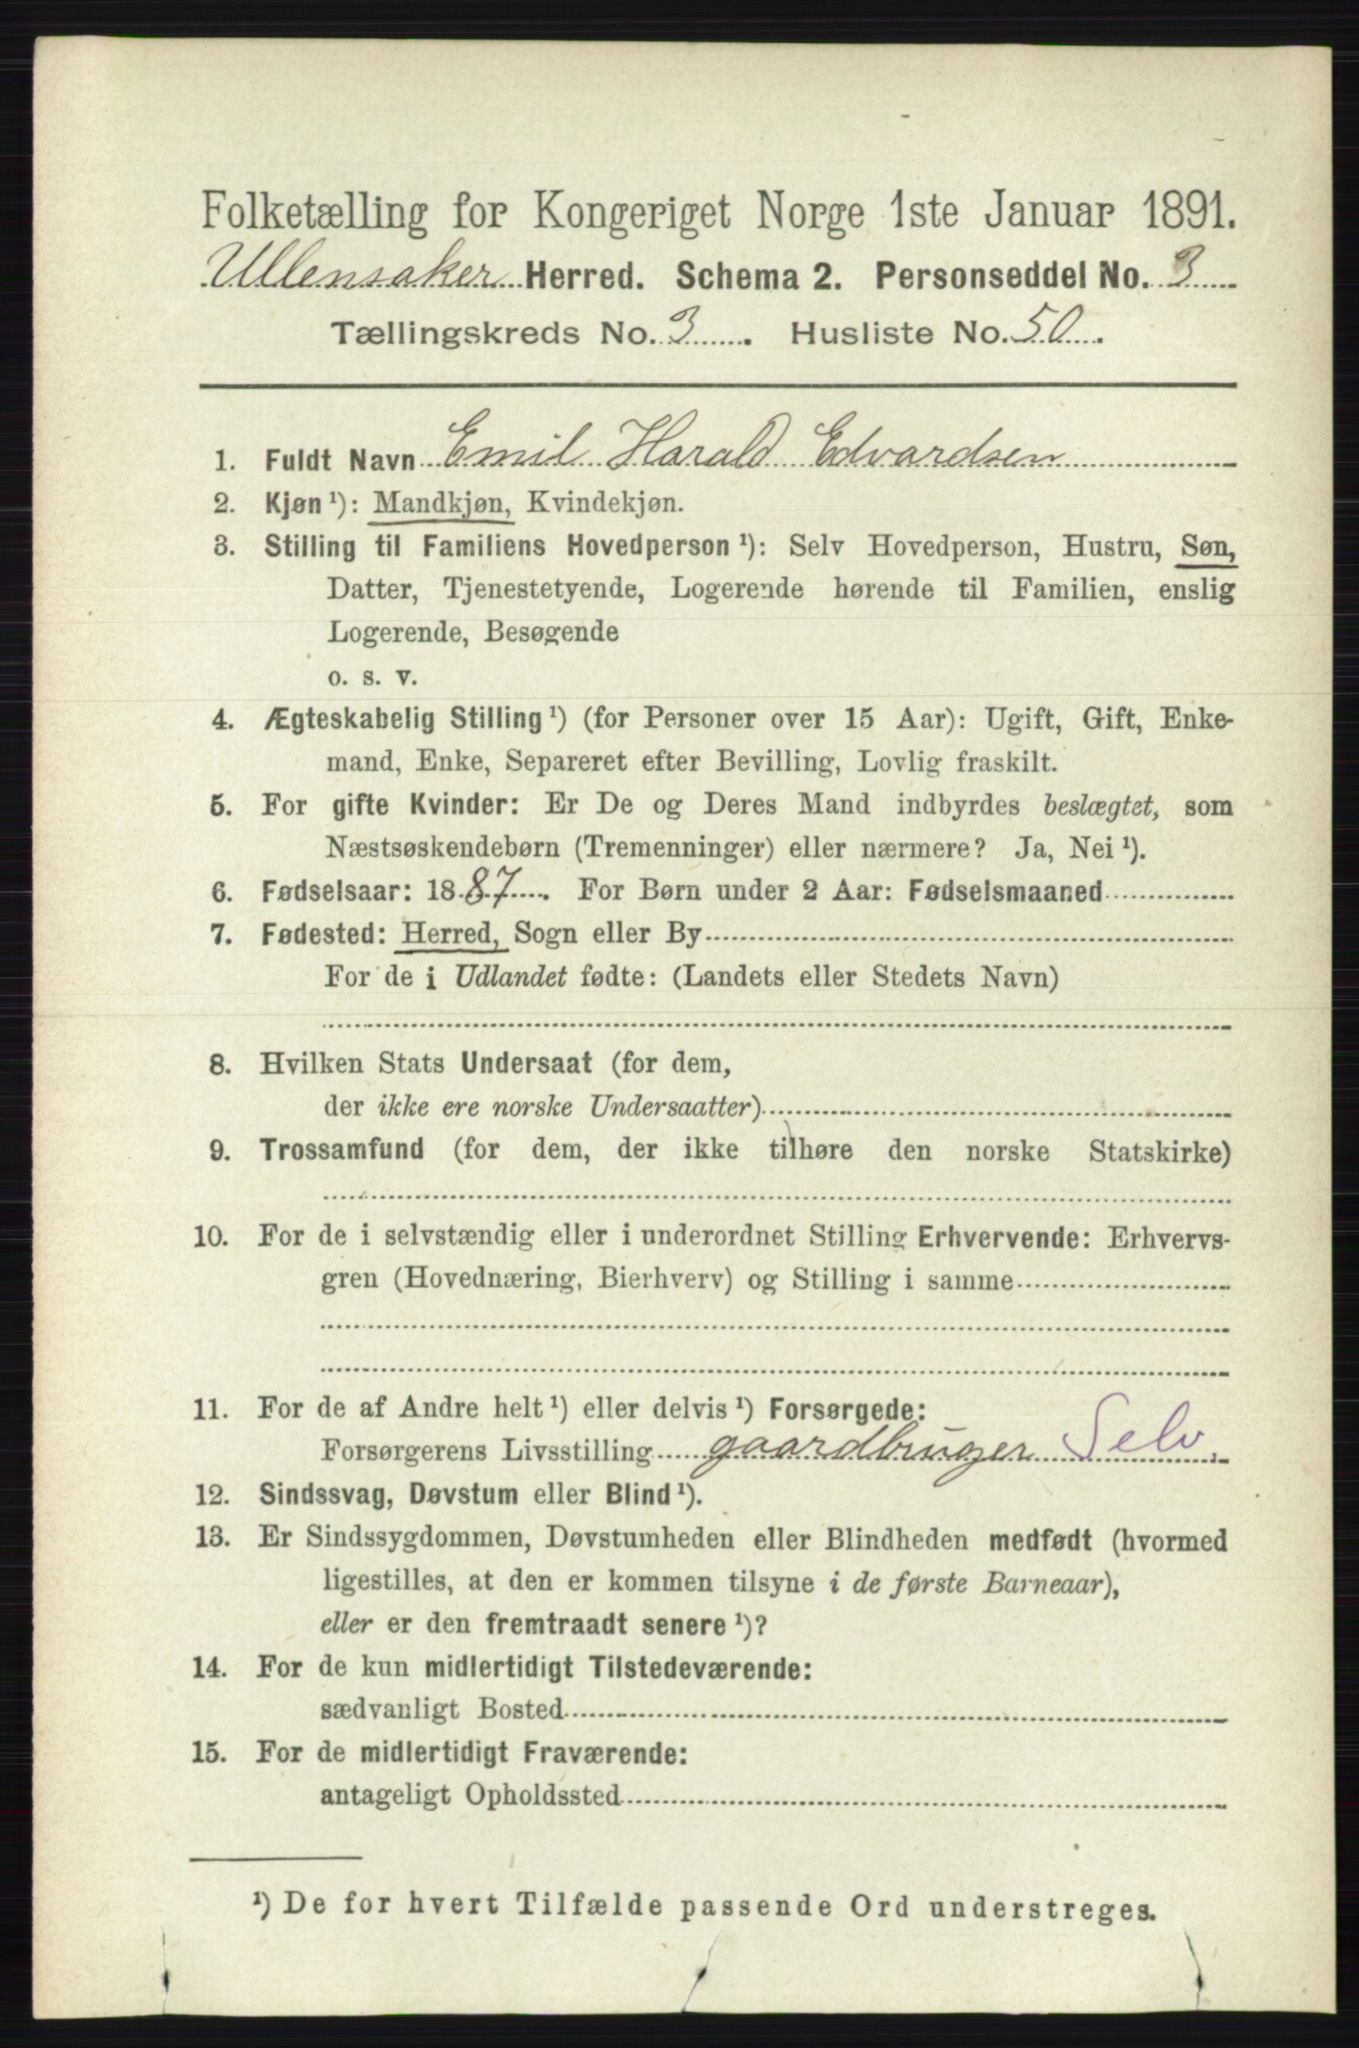 Folketælling for Kongeriget Norge 1ste Januar 1891.
Ullensaker Herred. Schema 2. Personseddel No. 3
Tællingskreds No. 3. Husliste No. 50.
1. Fuldt Navn Emil Harald Edvardsen
2. Kjøn ¹): Mandkjøn, Kvindekjøn.
3. Stilling til Familiens Hovedperson ¹): Selv Hovedperson, Hustru, Søn,
Datter, Tjenestetyende, Logerende hørende til Familien, enslig
Logerende, Besøgende
o. s. v.
4. Ægteskabelig Stilling ¹) (for Personer over 15 Aar): Ugift, Gift, Enke-
mand, Enke, Separeret efter Bevilling, Lovlig fraskilt.
5. For gifte Kvinder: Er De og Deres Mand indbyrdes beslægtet, som
Næstsøskendebørn (Tremenninger) eller nærmere? Ja, Nei ¹).
6. Fødselsaar: 1887. For Børn under 2 Aar: Fødselsmaaned
7. Fødested: Herred, Sogn eller By
For de i Udlandet fødte: (Landets eller Stedets Navn)
8. Hvilken Stats Undersaat (for dem,
der ikke ere norske Undersaatter)
9. Trossamfund (for dem, der ikke tilhøre den norske Statskirke)
10. For de i selvstændig eller i underordnet Stilling Erhvervende: Erhvervs-
gren (Hovednæring, Bierhverv) og Stilling i samme
11. For de af Andre helt ¹) eller delvis ¹) Forsørgede:
Forsørgerens Livsstilling gaardbruger Selv.
12. Sindssvag, Døvstum eller Blind ¹).
13. Er Sindssygdommen, Døvstumheden eller Blindheden medfødt (hvormed
ligestilles, at den er kommen tilsyne i de første Barneaar),
eller er den fremtraadt senere ¹)?
14. For de kun midlertidigt Tilstedeværende:
sædvanligt Bosted
15. For de midlertidigt Fraværende:
antageligt Opholdssted
¹) De for hvert Tilfælde passende Ord understreges.